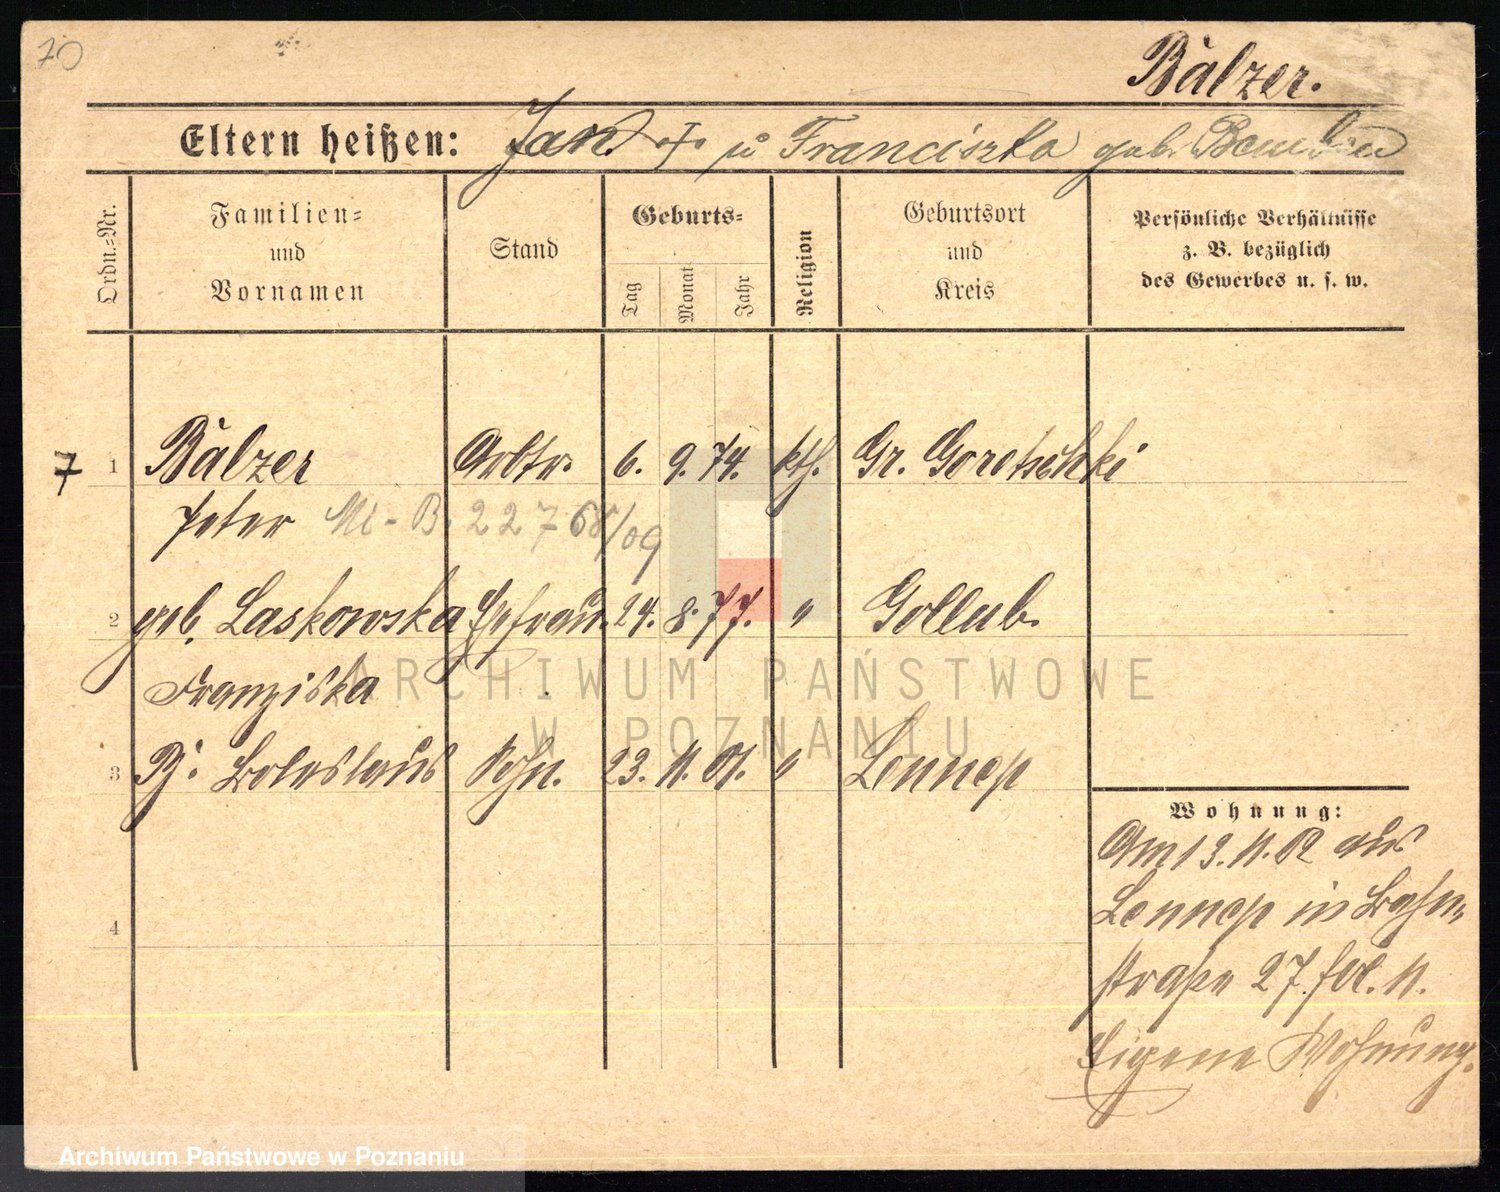 70
Bälzer.
Eltern heißen: Jan † u Franciszka geb.
Ordn.=Nr.
Familien=
und
Vornamen
Stand
Geburts=
Tag
Monat
Jahr
Religion
Geburtsort
und
Kreis
Persönliche Verhältnisse
z. B. bezüglich
des Gewerbes u. s. w.
7 1 Bälzer Arbtr. 6. 9. 74. kth. Gr. Goretschki
Peter M-B. 22768/09
2 geb. Laskowska Ehefrau. 24. 8. 77. " Gollub.
Franziska
3 B. Boleslaus Sohn. 23. 11. 01. " Lennep
4
Wohnung:
Am 13. 11. 02 aus
Lennep in Bahn-
straße 27. 11.
Eigene Wohnung.
ARCHIWUM PAŃSTWOWE
W POZNANIU
Archiwum Państwowe w Poznaniu